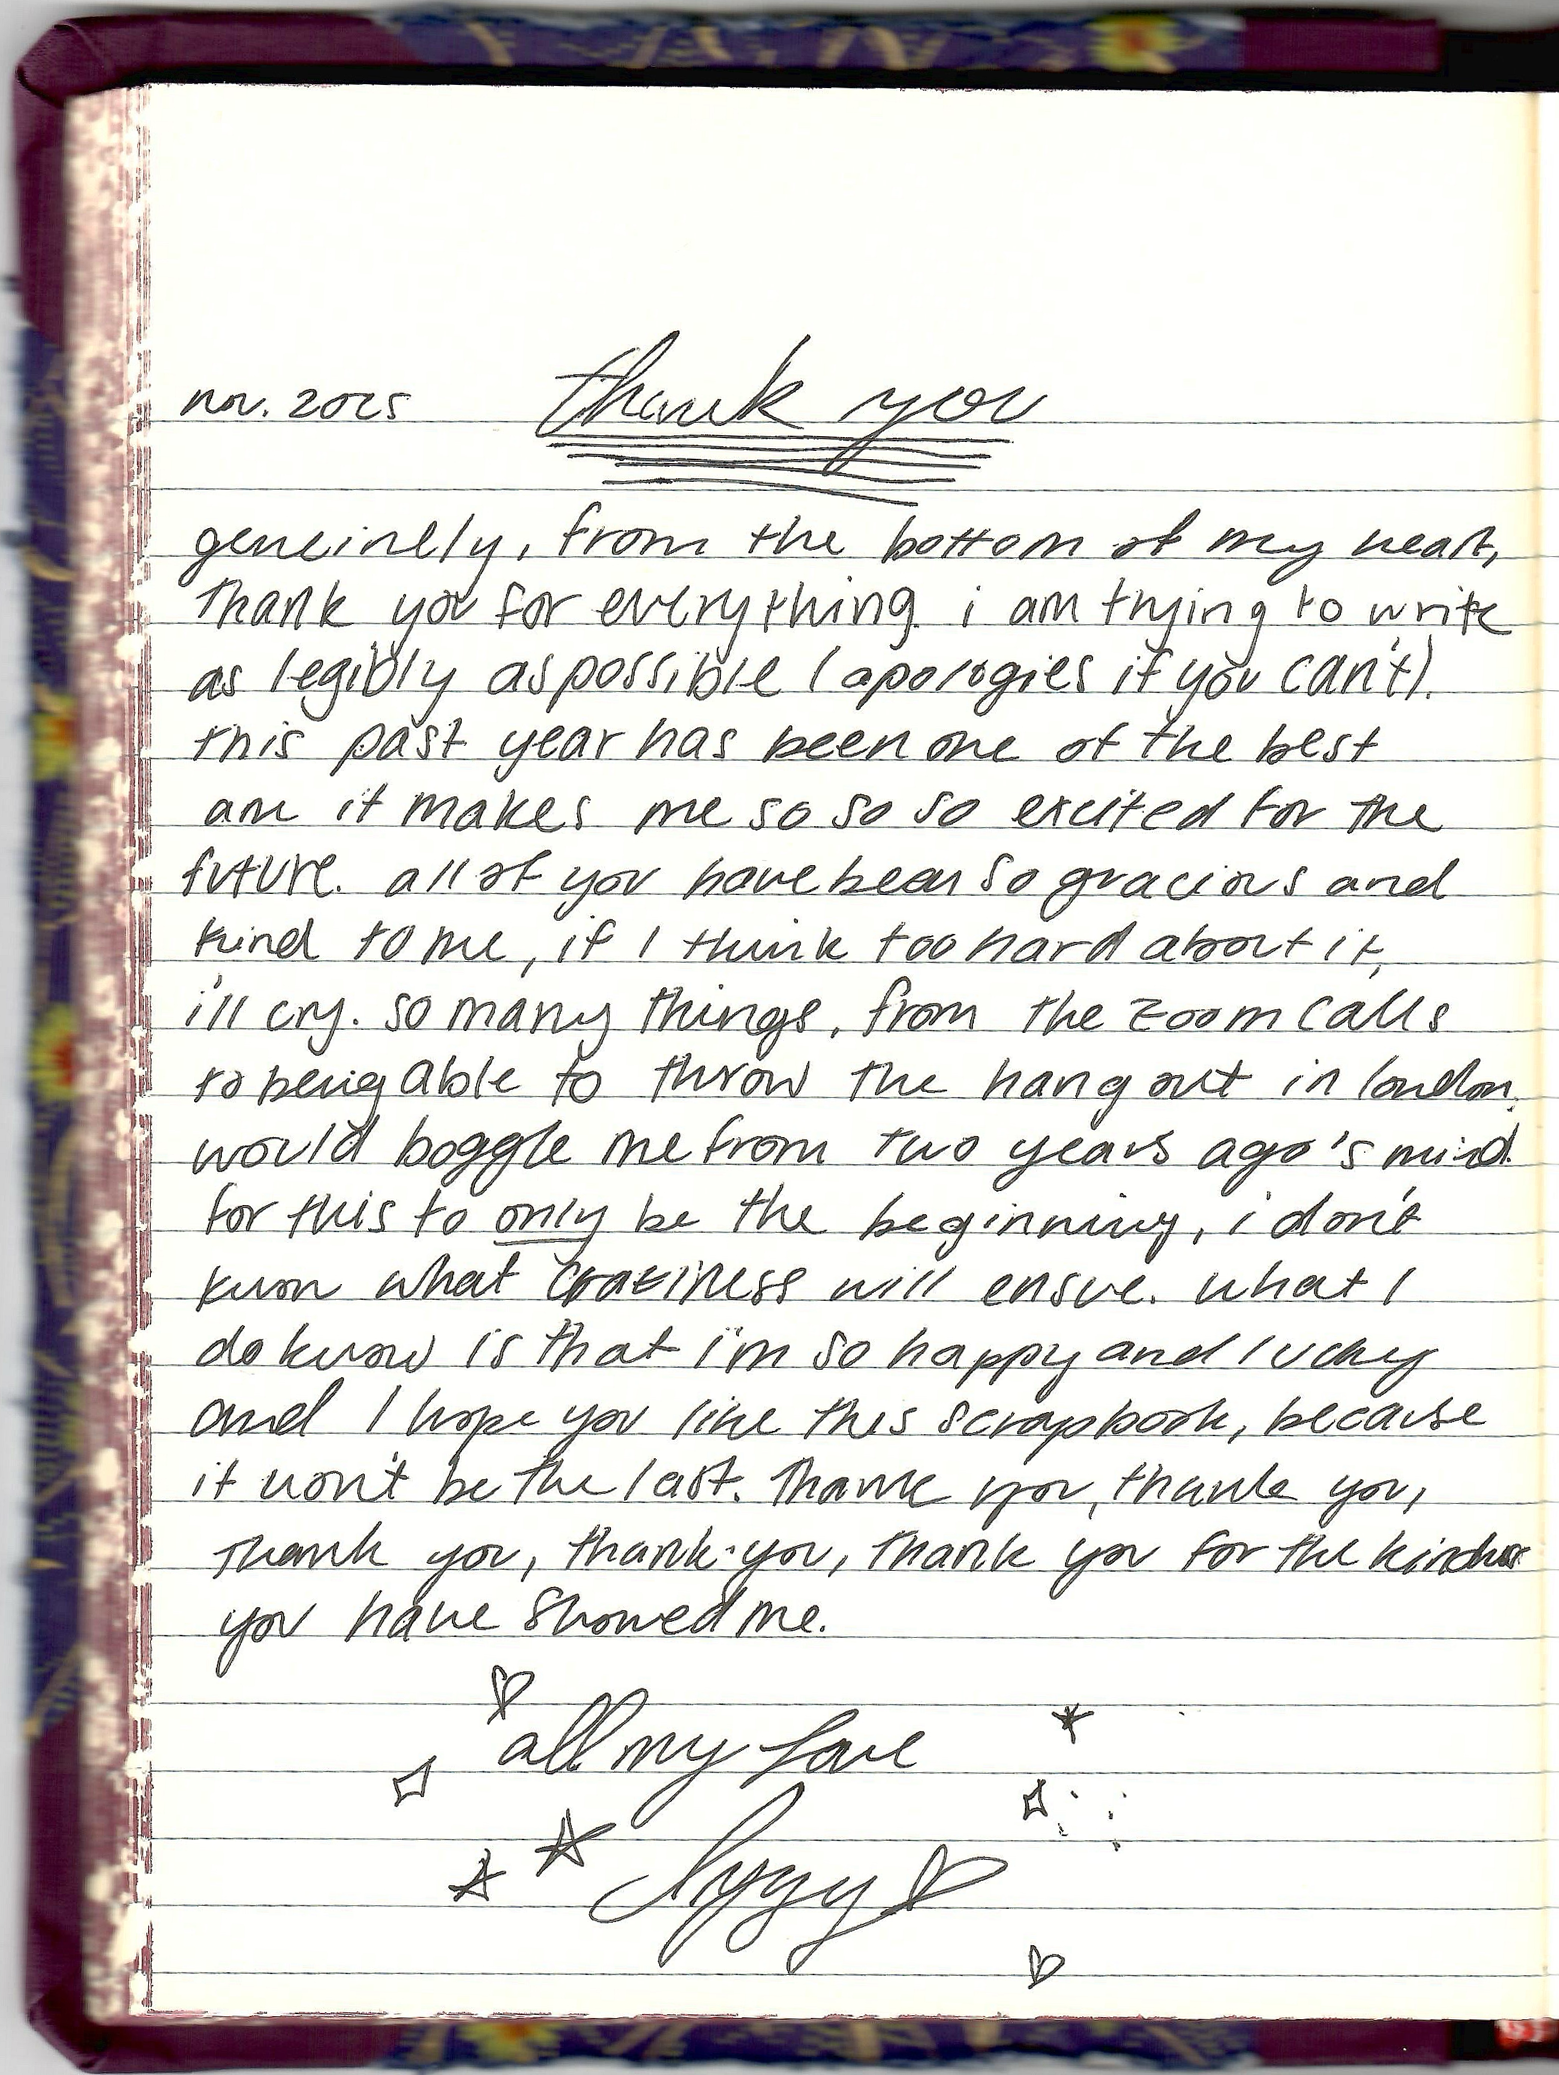 nov. 2025 thank you
genuinely, from the bottom of my heart,
thank you for everything. i am trying to write
as legibly as possible (apologies if you can't).
this past year has been one of the best
an it makes me so so so excited for the
future. all of you have been so gracious and
kind to me, if I think too hard about it,
i'll cry. so many things, from the zoom calls
to being able to throw the hangout in london,
would boggle me from two years ago's mind.
for this to only be the beginning, i don't
know what craziness will ensue. what I
do know is that i'm so happy and lucky
and I hope you like this scrapbook, because
it won't be the last. thank you, thank you,
thank you, thank you, thank you for the kindness
you have showed me.
all my love